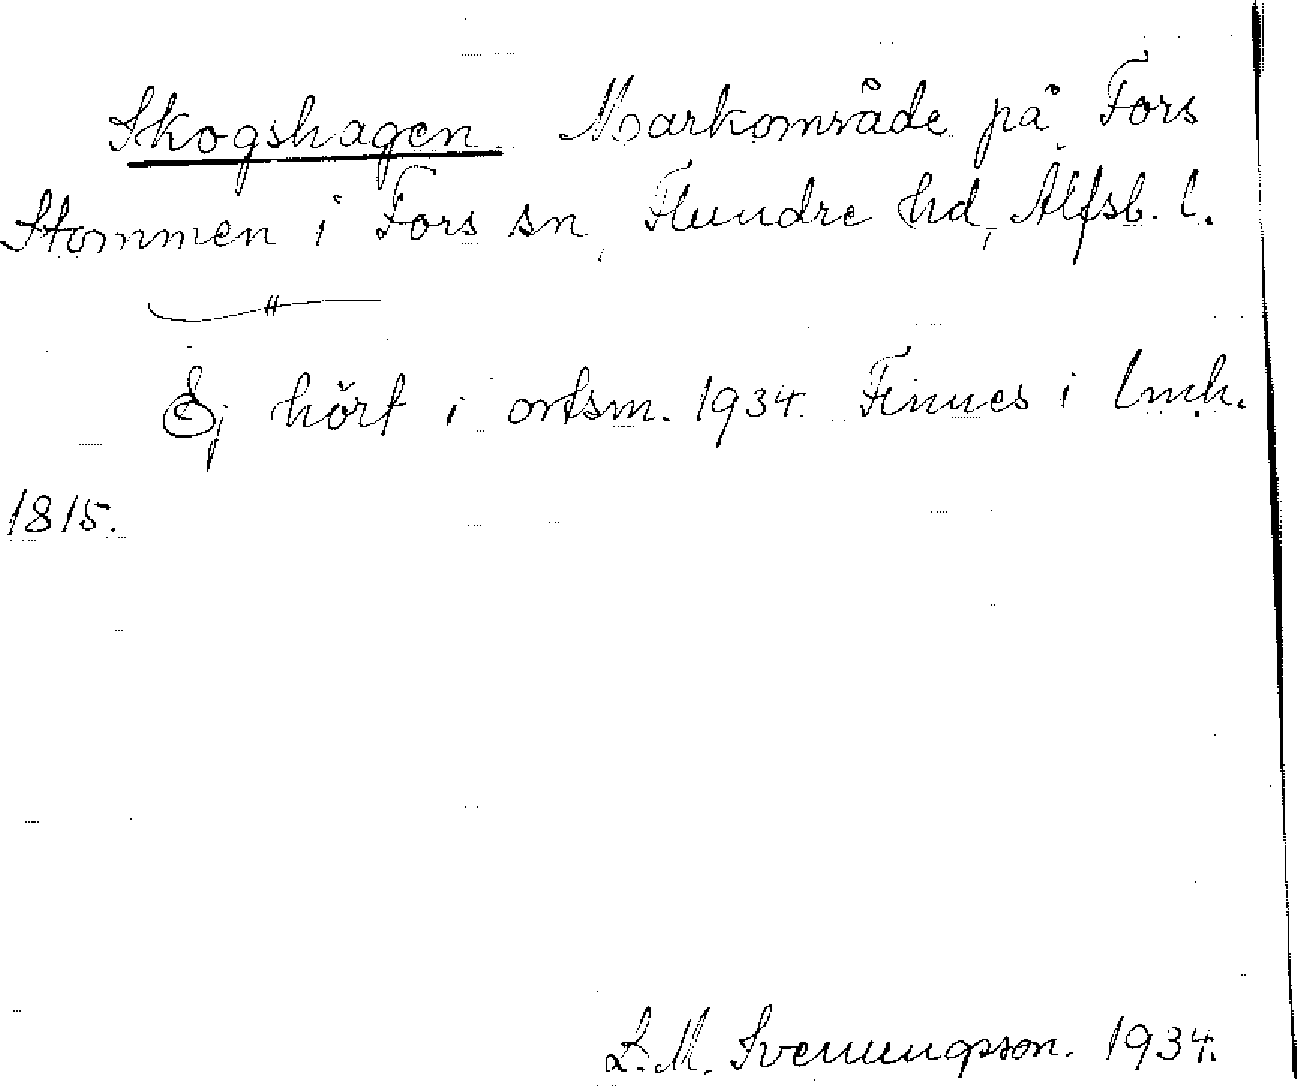 Skogshagen Markområde på Fors
Stommen i Fors sn, Flundre hd, Älfsb. l.
"
Ej hört i ortsm. 1934. Finnes i lmh.
1815.
L. M. Svenungsson. 1934.